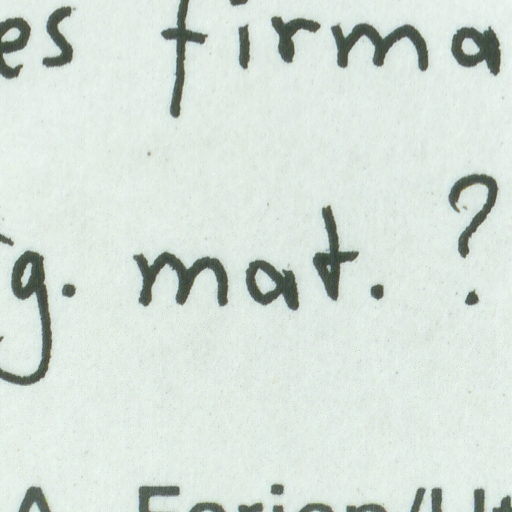 es firma
g. mat. ?
A Ferien/Ut